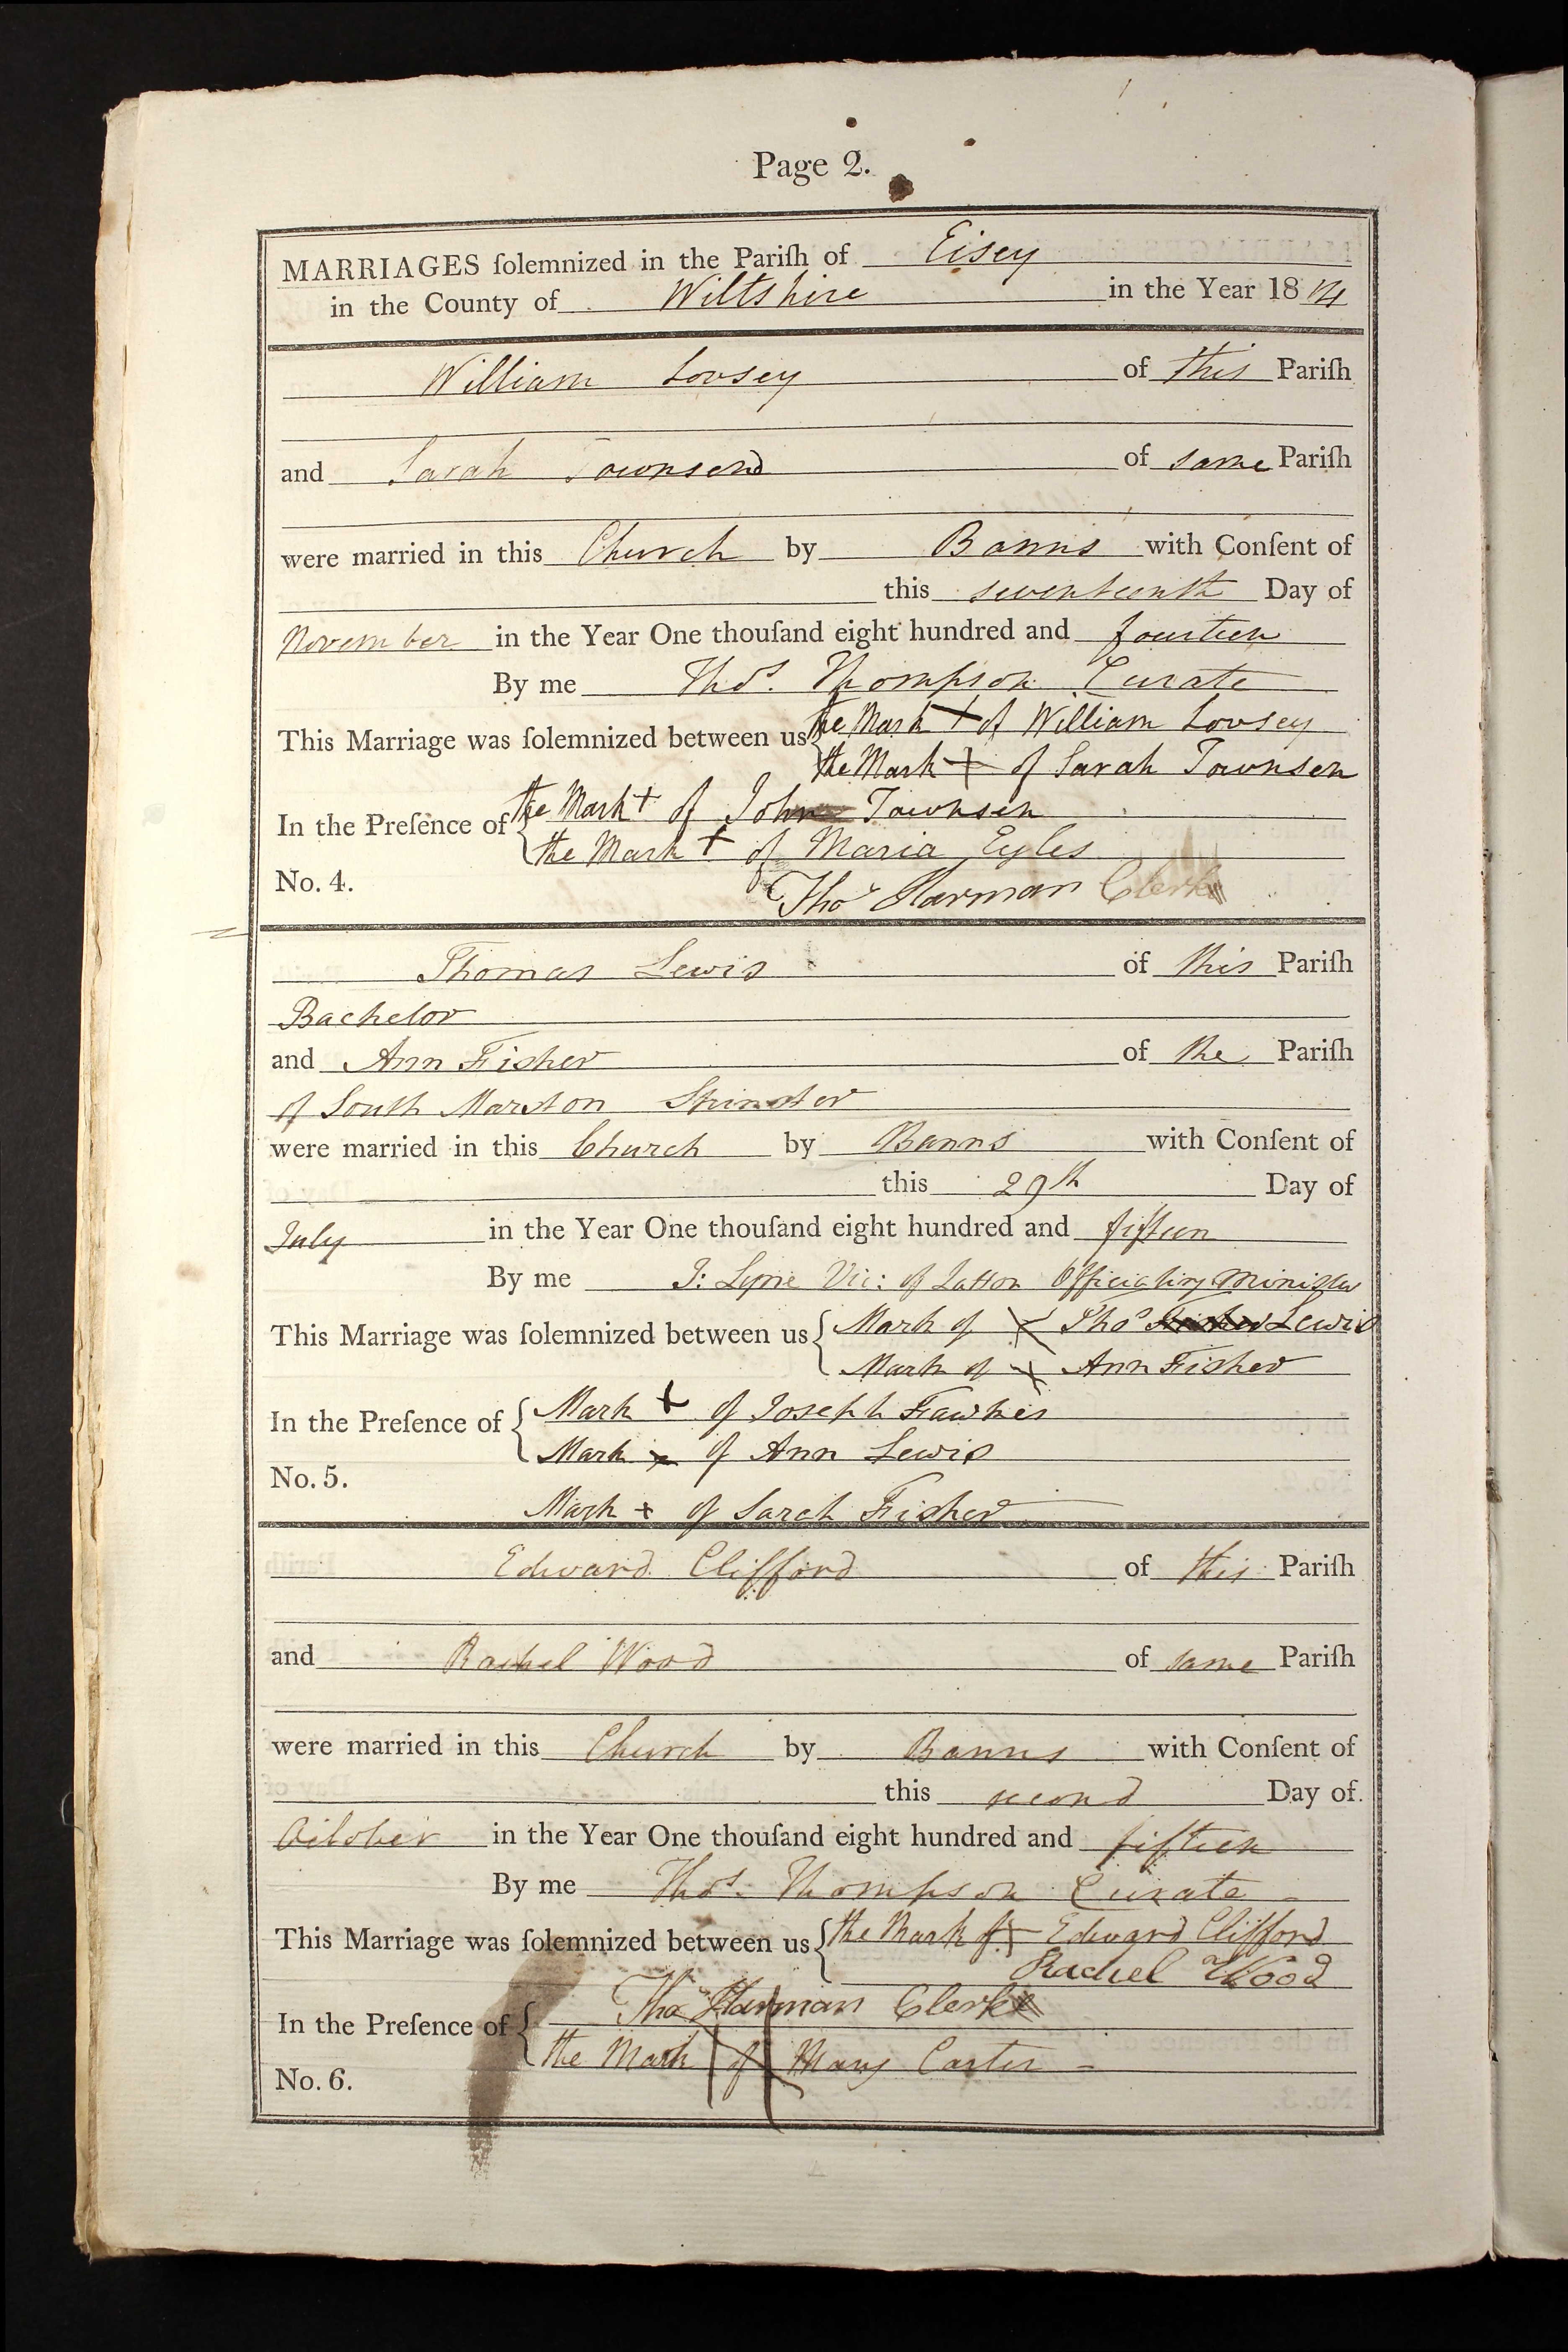 Page 2.
MARRIAGES ſolemnized in the Pariſh of Eisey
in the County of Wiltshire in the Year 18 14
William Lovsey of this Pariſh
and Sarah Townsend of same Pariſh
were married in this Church by Banns with Conſent of
this seventeenth Day of
November in the Year One thouſand eight hundred and fourteen
By me Thos. Thompson Curate
This Marriage was ſolemnized between us { the Mark + of William Lovsey
the Mark + of Sarah Townsen
In the Preſence of { the Mark + of John Townsen
the Mark + of Maria Eyles
No. 4.
Thos Harman Clerk
Thomas Lewis of this Pariſh
Bachelor
and Ann Fisher of the Pariſh
of South Marston Spinster
were married in this Church by Banns with Conſent of
this 29th Day of
July in the Year One thouſand eight hundred and fifteen
By me J: Lyne Vic: of Latton Officiating Minister
This Marriage was ſolemnized between us { Mark of X Thos Lewis
Mark of X Ann Fisher
In the Preſence of { Mark + of Joseph Fawkes
Mark x of Ann Lewis
No. 5.
Mark + of Sarah Fisher
Edward Clifford of this Pariſh
and Rachel Wood of same Pariſh
were married in this Church by Banns with Conſent of
this second Day of.
October in the Year One thouſand eight hundred and fifteen
By me Thos. Thompson Curate
This Marriage was ſolemnized between us { the Mark of + Edward Clifford
Rachel Wood
In the Preſence of { Thos Harman Clerk
the Mark of Mary Carter
No. 6.